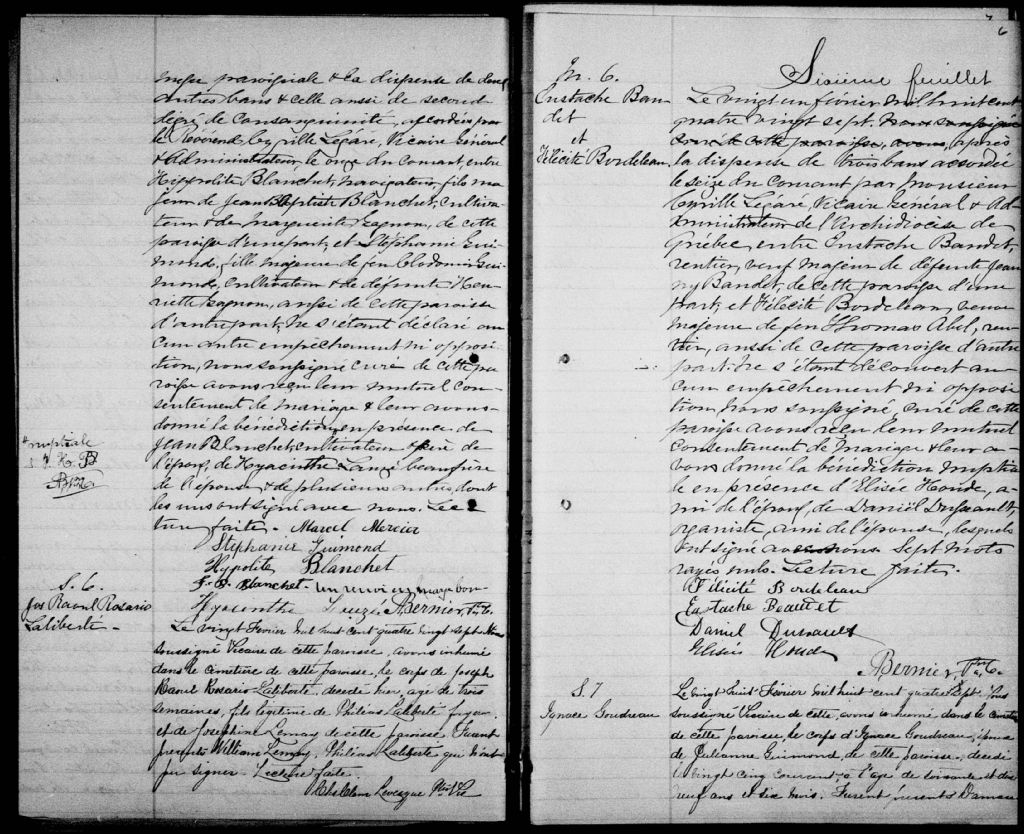 messe paroissiale & la dispense de deux
autres bans & celle aussi de second
degré de consanguinité, accordées par
le Révérend Cyrille Légaré, Vicaire Général
& Administrateur le onze du courant, entre
Hippolite Blanchet, navigateur, fils ma
jeur de Jean Baptiste Blanchet, cultiva
teur & de Marguerite Gagnon, de cette
paroisse d'une part, et Stéphanie Gui
mond, fille majeure de feu Clodomir Gui
mond, cultivateur & de défunte Hen
riette Gagnon, aussi de cette paroisse
d'autre part, ne s'étant déclaré au
cun autre empêchement ni opposi
tion, nous soussigné curé de cette pa
roisse avons reçu leur mutuel con
sentement de mariage & leur avons
donné la bénédiction, en présence de
Jean Blanchet, cultivateur & père de
l'époux, de Hyacinthe Lauzé beaufrère
de l'épouse & de plusieurs autres, dont
les uns ont signé avec nous. Lec
ture faite. Marcel Mercier
Stephanie Guimond
Hypolite Blanchet
J. B. Blanchet. Un renvoi en marge bon
Hyacinthe Lauzé Bernier, Ptre C.
+ nuptiale
S. G.
Jos Raoul Rosario
Laliberté
Le vingt Février mil huit cent quatre vingt sept Nous
soussigné Vicaire de cette paroisse, avons inhumé
dans le cimetière de cette paroisse, le corps de Joseph
Raoul Rosario Laliberté, décédé hier, agé de trois
semaines, fils légitime de Philéas Laliberté
et de Josephine Lemay de cette paroisse Furent
présents William Lemay, Philéas Laliberté qui n'ont
pu signer. Lecture faite.
Levesque Ptre Vic
6
Sixième feuillet
M. 6.
Eustache Bau
det
et
Félicité Bordeleau
Le vingt un février mil huit cent
quatre vingt sept. Nous soussigné
Curé de cette paroisse, avons, après
la dispense de trois bans accordée
le seize du courant par Monsieur
Cyrille Légaré, Vicaire Général & Ad
ministrateur de l'Archidiocèse de
Québec, entre Eustache Baudet,
rentier, veuf majeur de défunte Jean
ny Baudet, de cette paroisse d'une
part, et Félicité Bordeleau, veuve
majeure de feu Thomas Abel, ren
tier, aussi de cette paroisse d'autre
part, ne s'étant découvert au
cun empêchement ni opposi
tion, nous soussigné, curé de cette
paroisse avons reçu leur mutuel
consentement de mariage & leur a
vons donné la bénédiction nuptia
le en présence d'Elisée Houde, a
mi de l'époux, de Daniel Dussault,
organiste, ami de l'épouse, lesquels
ont signé avec nous. Sept mots
rayés nuls. Lecture faite.
Félicité Bordeleau
Eustache Beaudet
Daniel Dussault
Elisée Houde
Bernier, Ptre C.
S. 7
Ignace Goudreau
Le vingt huit Février mil huit cent quatre sept Nous
soussigné Vicaire de cette, avons inhumé dans le cimetière
de cette paroisse, le corps d'Ignace Goudreau, époux
de Julianne Guimond de cette paroisse, décédé
le vingt cinq courant à l'age de soixante et dix
neuf ans et six mois. Furent présents Damase